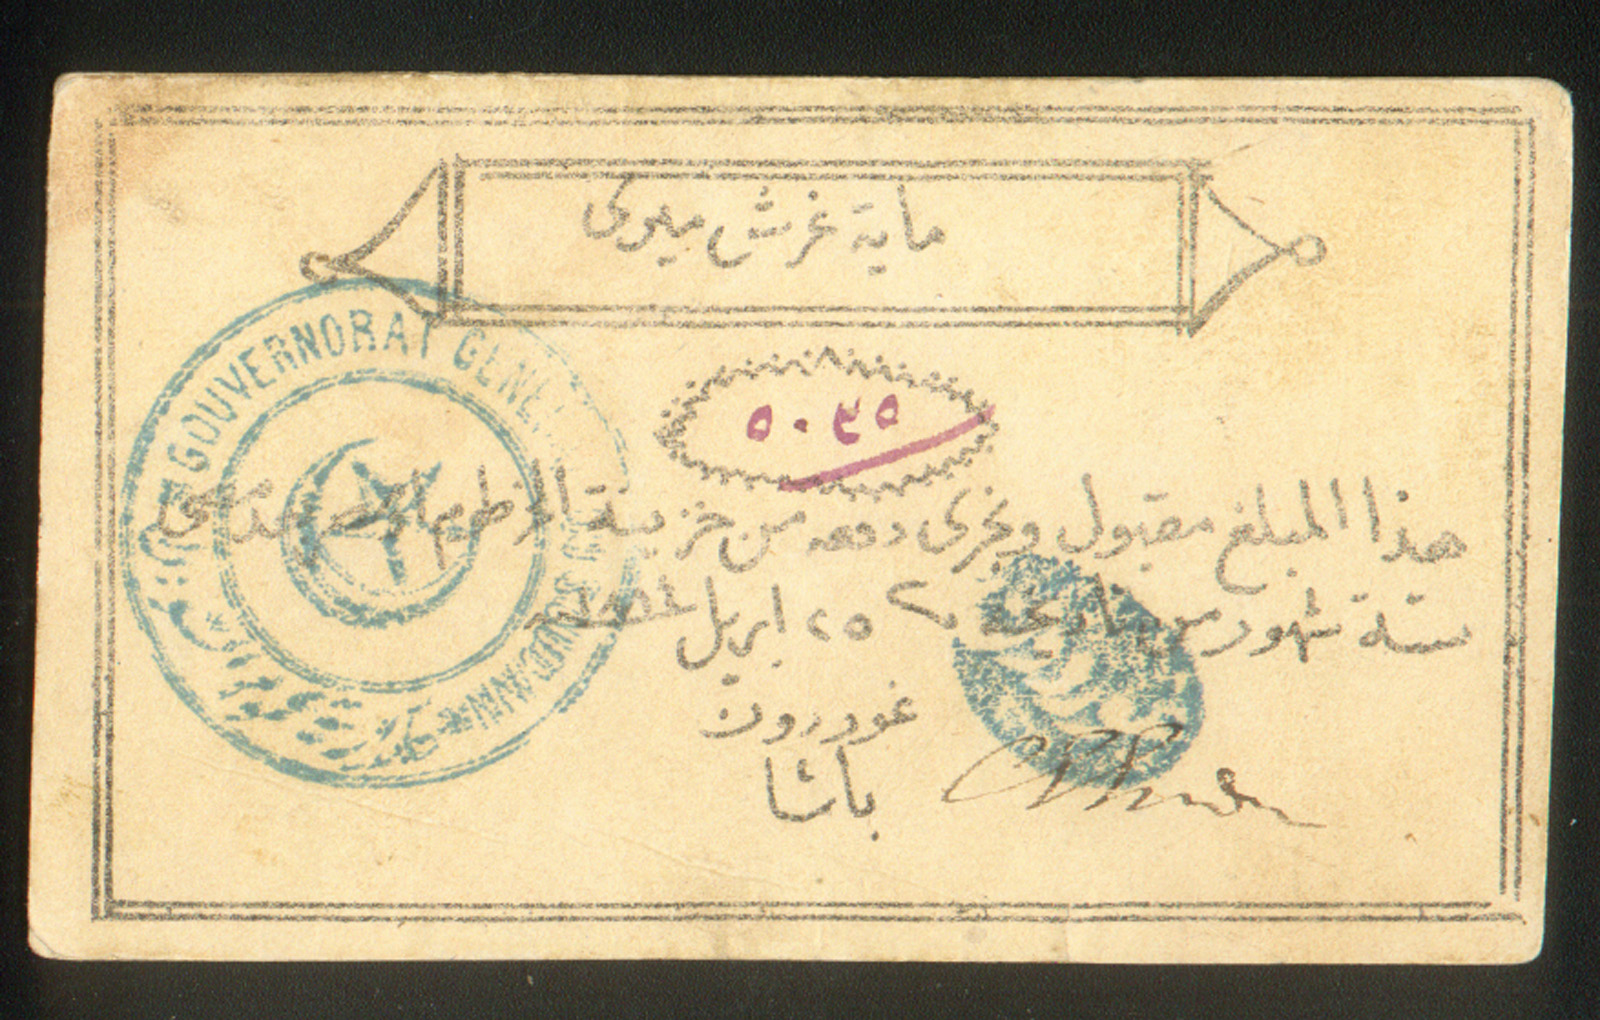 ماية غرش ميري
٥٠٣٥
هذا المبلغ مقبول ويجري دفعه من خزينة الخرطوم او مصر بعد مضى
ستة شهور من تاريخه ٢٥ ابريل ١٨٨٤
غوردون
باشا
GOUVERNORAT GENERAL DU SOUDAN